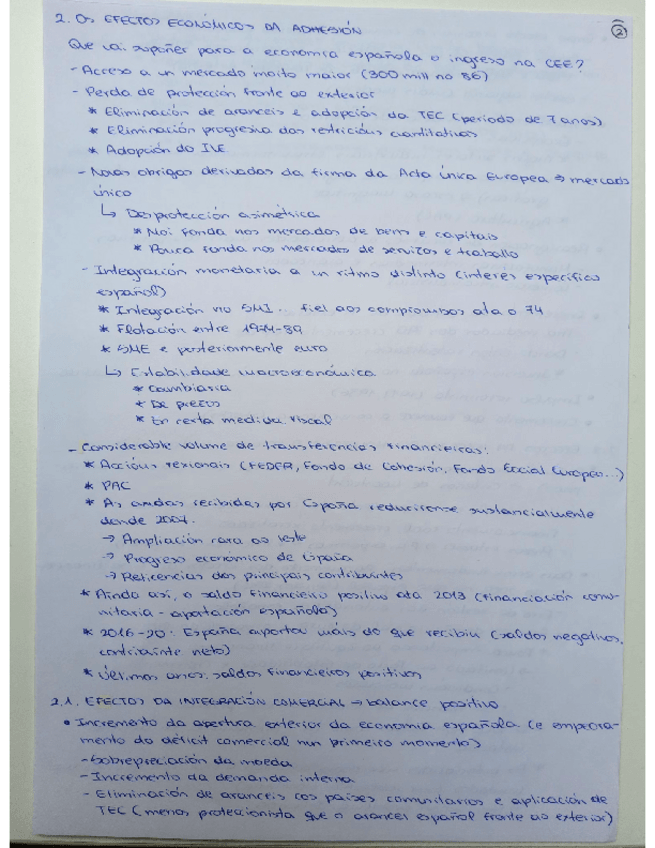 2. OS EFECTOS ECONÓMICOS DA ADHESIÓN
2
Que vai supoñer para a economía española o ingreso na CEE?
- Acceso a un mercado moito maior (300 mill no 86)
- Perda de protección fronte ao exterior
* Eliminación de aranceis e adopción da TEC (período de 7 anos)
* Eliminación progresiva das restricións cuantitativas
* Adopción do IVE
- Novas obrigas derivadas da firma da Acta Única Europea → mercado
único
↳ Desprotección asimétrica
* Moi fonda nos mercados de bens e capitais
* Pouca fonda nos mercados de servizos e traballo
- Integración monetaria a un ritmo distinto (interés específico
español)
* Integración no SMI.. fiel aos compromisos ata o 74
* Flotación entre 1974-89
* SME e posteriormente euro
↳ Estabilidade macroeconómica
* Cambiaria
* De prezos
* En certa medida fiscal
- Considerable volume de transferencias financieiras:
* Accións rexionais (FEDER, Fondo de Cohesión, Fondo Social Europeo...)
* PAC
* As axudas recibidas por España reducíronse sustancialmente
dende 2007.
→ Ampliación cara ao leste
→ Progreso económico de España
→ Reticencias dos principais contribuintes
* Aínda así, o saldo financieiro positivo ata 2013 (financiación comu-
nitaria - aportación española)
* 2016-20: España aportou máis do que recibiu (saldos negativos,
contribuínte neto)
* Últimos anos: saldos financieiros positivos
2.1. EFECTOS DA INTEGRACIÓN COMERCIAL → balance positivo
• Incremento da apertura exterior da economía española (e empeora-
mento do déficit comercial nun primeiro momento)
- Sobrepreciación da moeda
- Incremento da demanda interna
- Eliminación de aranceis cos países comunitarios e aplicación de
TEC (menos proteccionista que o arancel español fronte ao exterior)